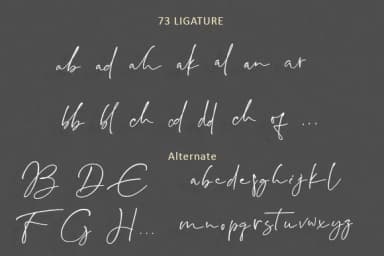 73 LIGATURE
ab ad ah ak al an ar
bb bl ch cd dd ch of ...
Alternate
B D E
abcdefghijkl
F G H...
mnopqrstuvwxyz